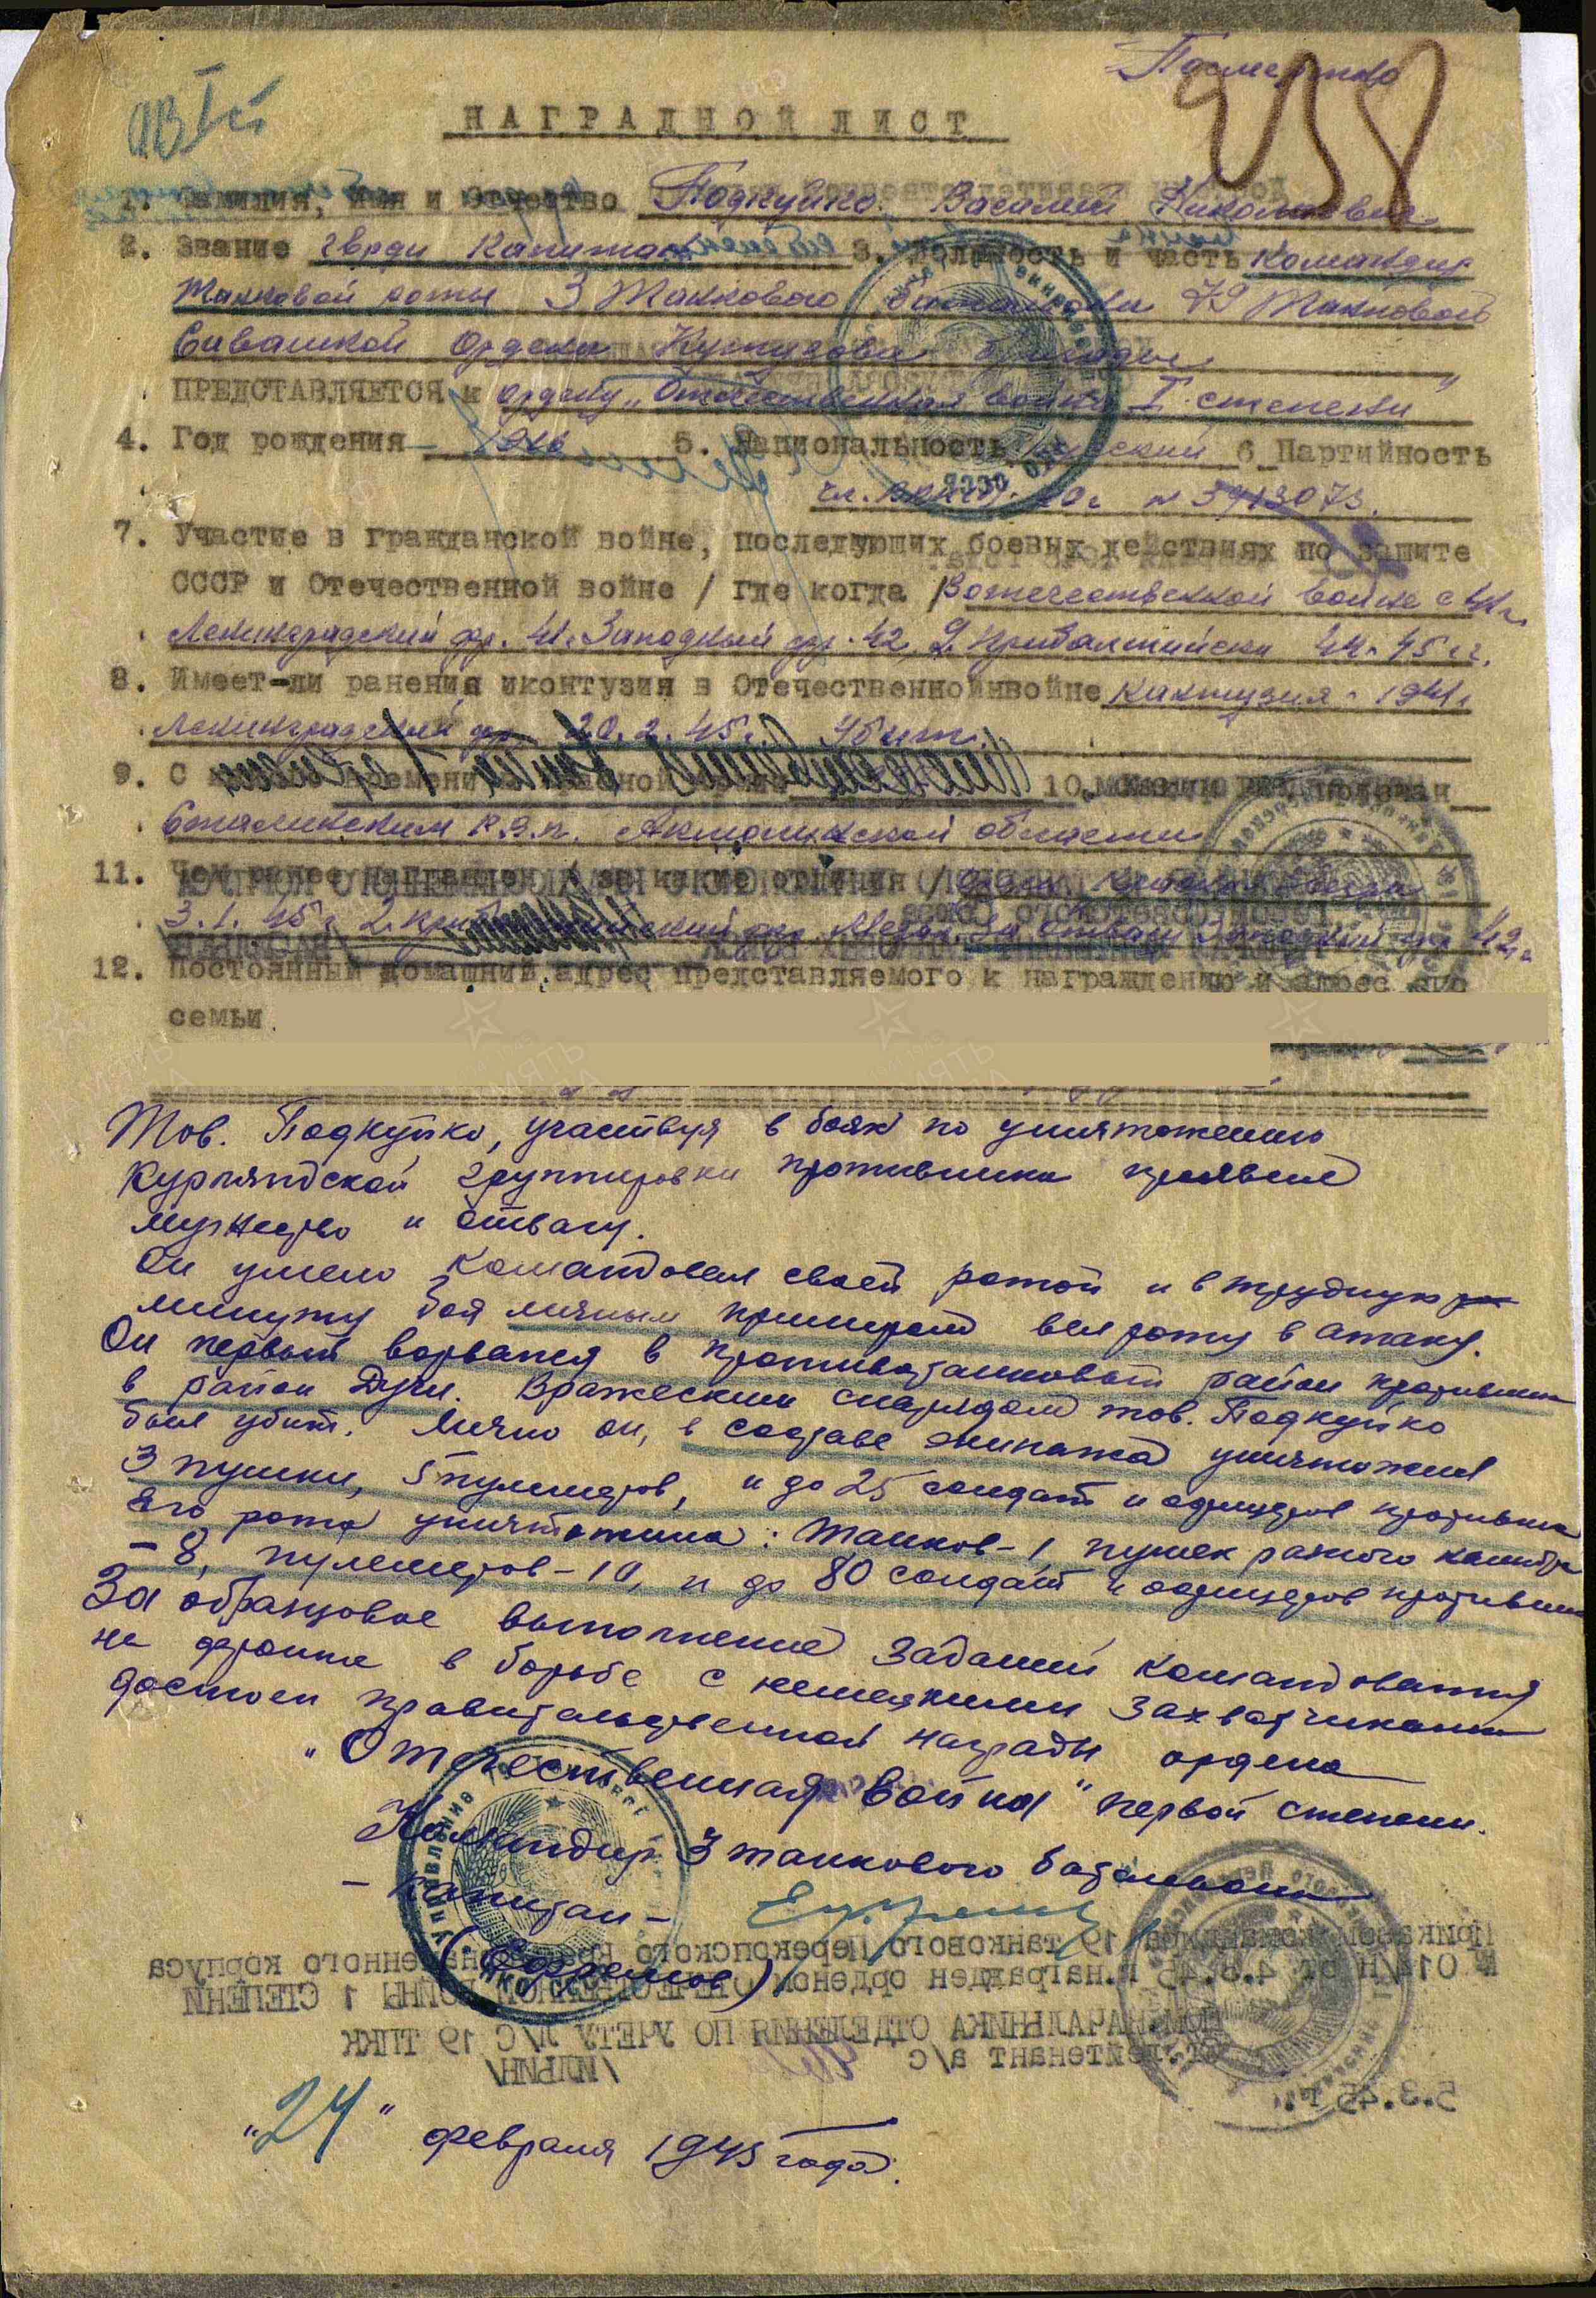 Посмертно
958
НАГРАДНОЙ ЛИСТ
1. Фамилия, имя и Отчество Подкуйко Василий Николаевич
2. Звание Гварди Капитан 3. Должность и часть Командир
Танковой роты 3 Танкового батальона 79 Танковой
Сивашкой Ордена Кутузова бригады
ПРЕДСТАВЛЯЕТСЯ к ордену „Отечественная война I степени"
4. Год рождения 1916 5. Национальность Русский 6 Партийность
чл. ВКП(б). 40г N 3913073.
7. Участие в гражданской войне, последующих боевых действиях по защите
СССР и Отечественной войне / где когда / В отечественной войне с 41г.
Ленинградский фр. 41. Западный фр. 42, 2 Прибалтийски 44-45 гг.
8. Имеет-ли ранения и контузия в Отечественной войне контузия - 1941г
Ленинградский фр. 20.2.45г. Убит.
9. С времени в красной 10. призван
Сталинским Р.В.К. Акмолинской области
11. Чем ранее награжден / за какие отличия / Орден Красная Звезда
3.1.45г 2. Прибалтийский фр. Медаль За отвагу Западный фр 42г
12. Постоянный домашний адрес представляемого к награждению и адрес его
семьи
Тов. Подкуйко, участвуя в боях по уничтожению
Курляндской группировки противника проявил
мужество и отвагу.
Он умело командовал своей ротой и в трудную
минуту боя личным примером вел роту в атаку.
Он первый ворвался в противотанковый район противника
в район Дучи. Вражеским снарядом тов. Подкуйко
был убит. Лично он, в составе экипажа уничтожил
3 пушки, 5 пулеметов, и до 25 солдат и офицеров противника
Его рота уничтожила: Танков-1, пушек разного калибра
– 8, пулеметов-10, и до 80 солдат и офицеров противника
За образцовое выполнение заданий командования
на фронте в борьбе с немецкими захватчиками
достоен правительственной награды ордена
„Отечественная война" первой степени.
Командир 3 танкового батальона
– Капитан –
(Ефремов)
Приказом командира 19 танкового Перекопского Краснознаменного корпуса
№ 014/н от 4.3.45 г. награжден орденом ОТЕЧЕСТВЕННОЙ ВОЙНЫ 1 СТЕПЕНИ
ПОМ.НАЧАЛЬНИКА ОТДЕЛЕНИЯ ПО УЧЕТУ Л/С 19 ТПКК
ст. лейтенант а/с
/МУРИН/
5.3.45 г.
„24" февраля 1945 года.